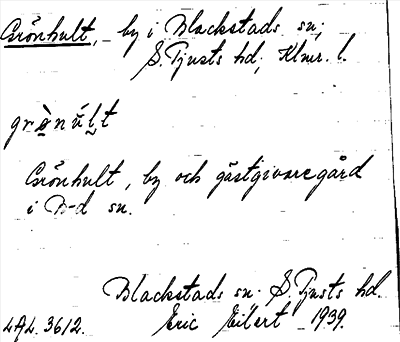 Grönhult, by i Blackstads sn;
S. Tjusts hd; Klmr. l.
grònúlt
Grönhult, by och gästgivaregård
i B-d sn.
Blackstads sn. S. Tjusts hd.
LAL. 3612. Eric Eilert 1939.